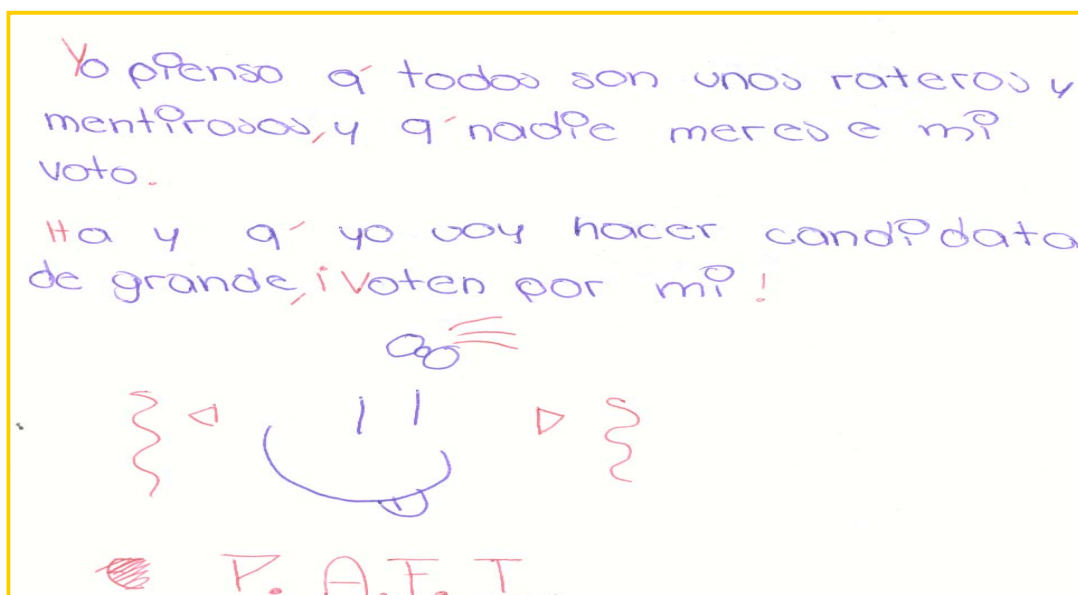 Yo pienso q' todos son unos rateros y
mentirosos, y q' nadie merese mi
voto.
Ha y q' yo voy hacer candidata
de grande, ¡Voten por mi!
P. A. F. T.